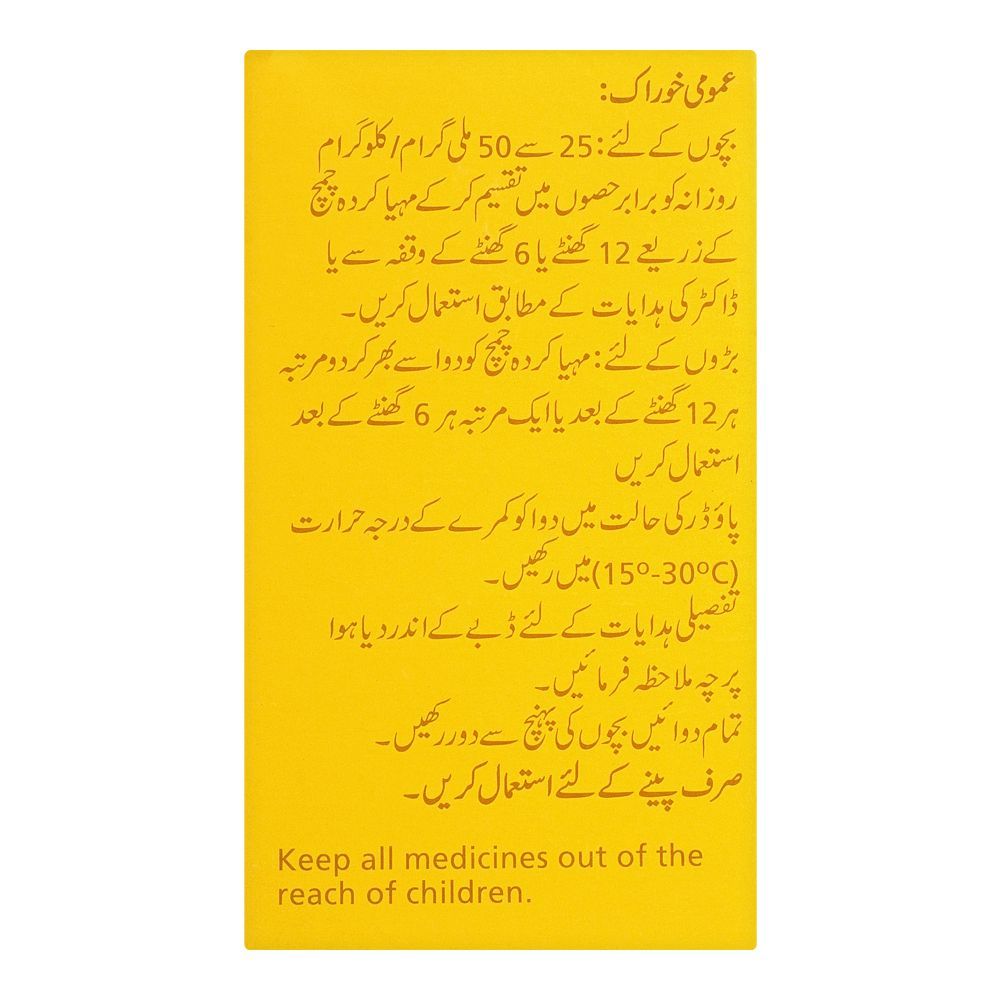 عمومی خوراک:
بچوں کے لئے: 25 سے 50 ملی گرام/کلوگرام
روزانہ کو برابر حصوں میں تقسیم کر کے مہیا کردہ چمچ
کے زریعے 12 گھنٹے یا 6 گھنٹے کے وقفہ سے یا
ڈاکٹر کی ہدایات کے مطابق استعمال کریں۔
بڑوں کے لئے: مہیا کردہ چمچ کو دوا سے بھر کر دو مرتبہ
ہر 12 گھنٹے کے بعد یا ایک مرتبہ ہر 6 گھنٹے کے بعد
استعمال کریں
پاؤڈر کی حالت میں دوا کو کمرے کے درجہ حرارت
(15º-30ºC) میں رکھیں۔
تفصیلی ہدایات کے لئے ڈبے کے اندر دیا ہوا
پرچہ ملاحظہ فرمائیں۔
تمام دوائیں بچوں کی پہنچ سے دور رکھیں۔
صرف پینے کے لئے استعمال کریں۔
Keep all medicines out of the
reach of children.